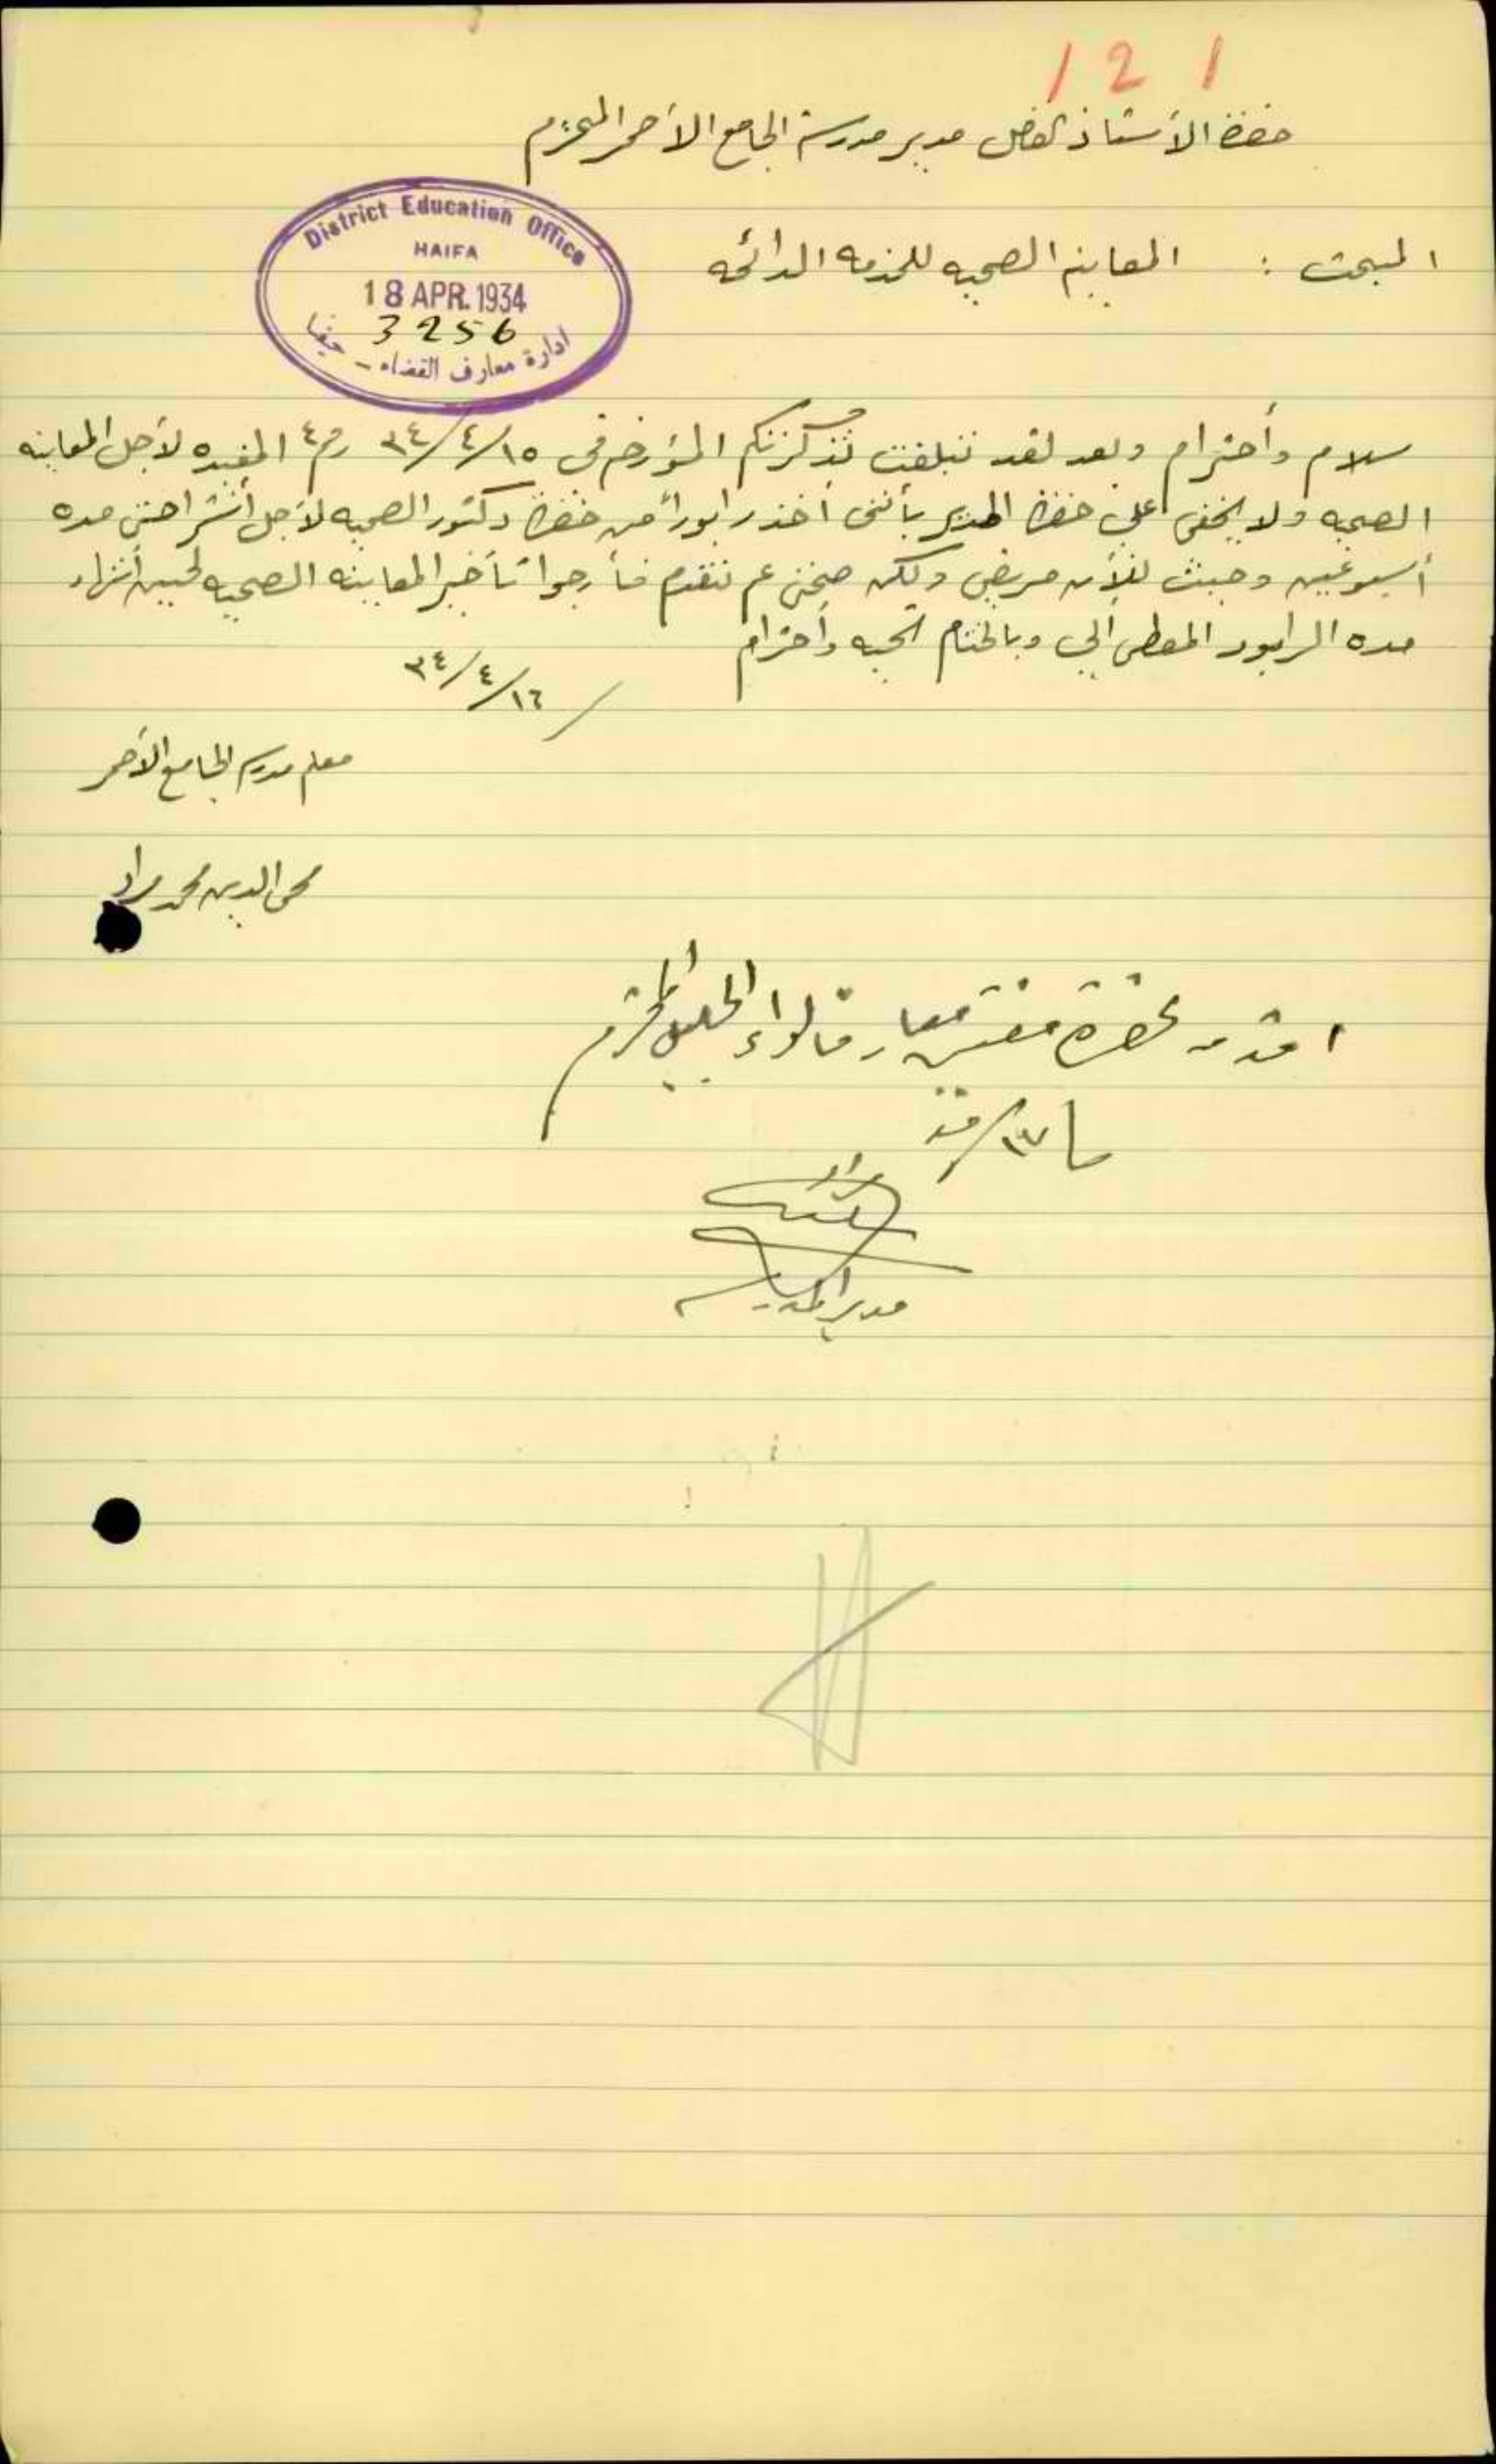 121
حضرة الأستاذ الفاضل مدير مدرسة الجامع الأحمر المحترم
District Education Office
HAIFA
18 APR. 1934
3256
ادارة معارف القضاء - حيفا
المبحث : المعاينه الصحيه للخدمه الدائمه
سلام وأحترام وبعد لقد تبلغت تذكرتكم المؤرخه في ١٥/٤/٣٤ رقم ٤ المفيده لأجل المعاينه
الصحيه ولا يخفى على حضرة المدير بأنني أخذ رابوراً من حضرة دكتور الصحيه لأجل أستراحتي مده
أسبوعين وحيث للأن مريض ولكن صحتي عم تتقدم فأرجوا تأخير المعاينه الصحيه لحين أنتهاء
مده الرابور المعطى إلي وبالختام تحيه وأحترام
١٦/٤/٣٤
معلم مدرسة الجامع الأحمر
محي الدين محمد مراد
اقدمه لحضرة مفتش معارف لواء الجليل المحترم
مدير المدرسة